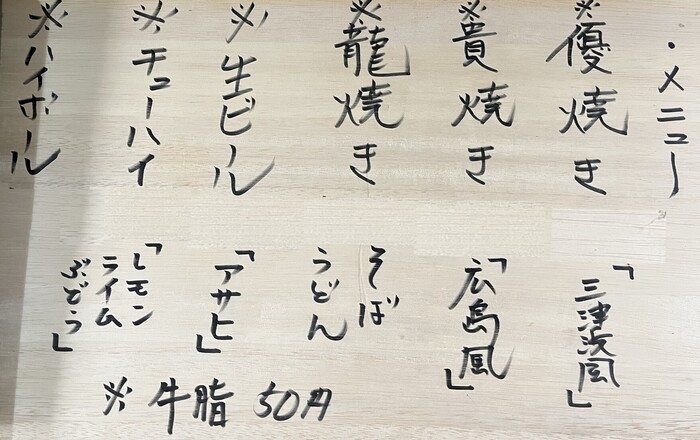 ・メニュー
※優焼き
「三津浜風」
※貴焼き
「広島風」
※龍焼き
そば
うどん
※生ビール
「アサヒ」
※チューハイ
「レモン
ライム
ぶどう」
※ハイボール
※牛脂 50円